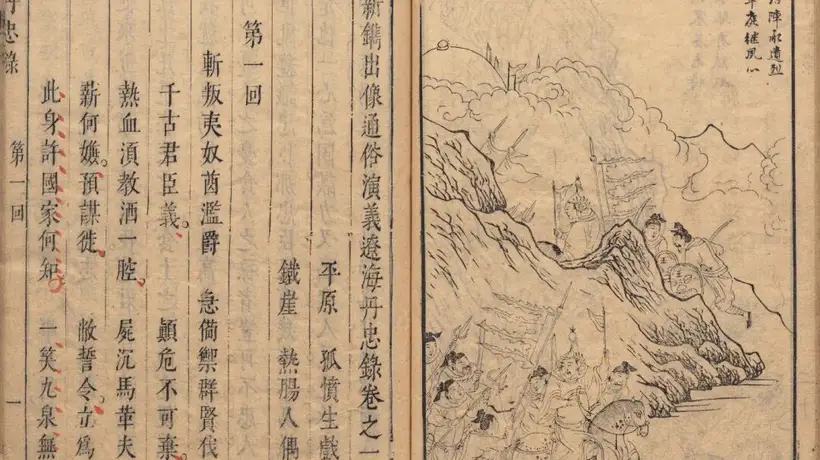 陣承遺烈
庭繼夙心
新鐫出像通俗演義遼海丹忠錄卷之一
平原人 孤憤生戲
鐵崖 熱腸人偶
第一回
斬叛夷奴酋濫爵 急備禦群賢伐
千古君臣義。顛危不可棄。
熱血湏教洒一腔。屍沉馬革夫
薪何嫌。預謀徙。敝誓令。立為
此身許國家何知。一笑九泉無
丹忠錄 第一回 一